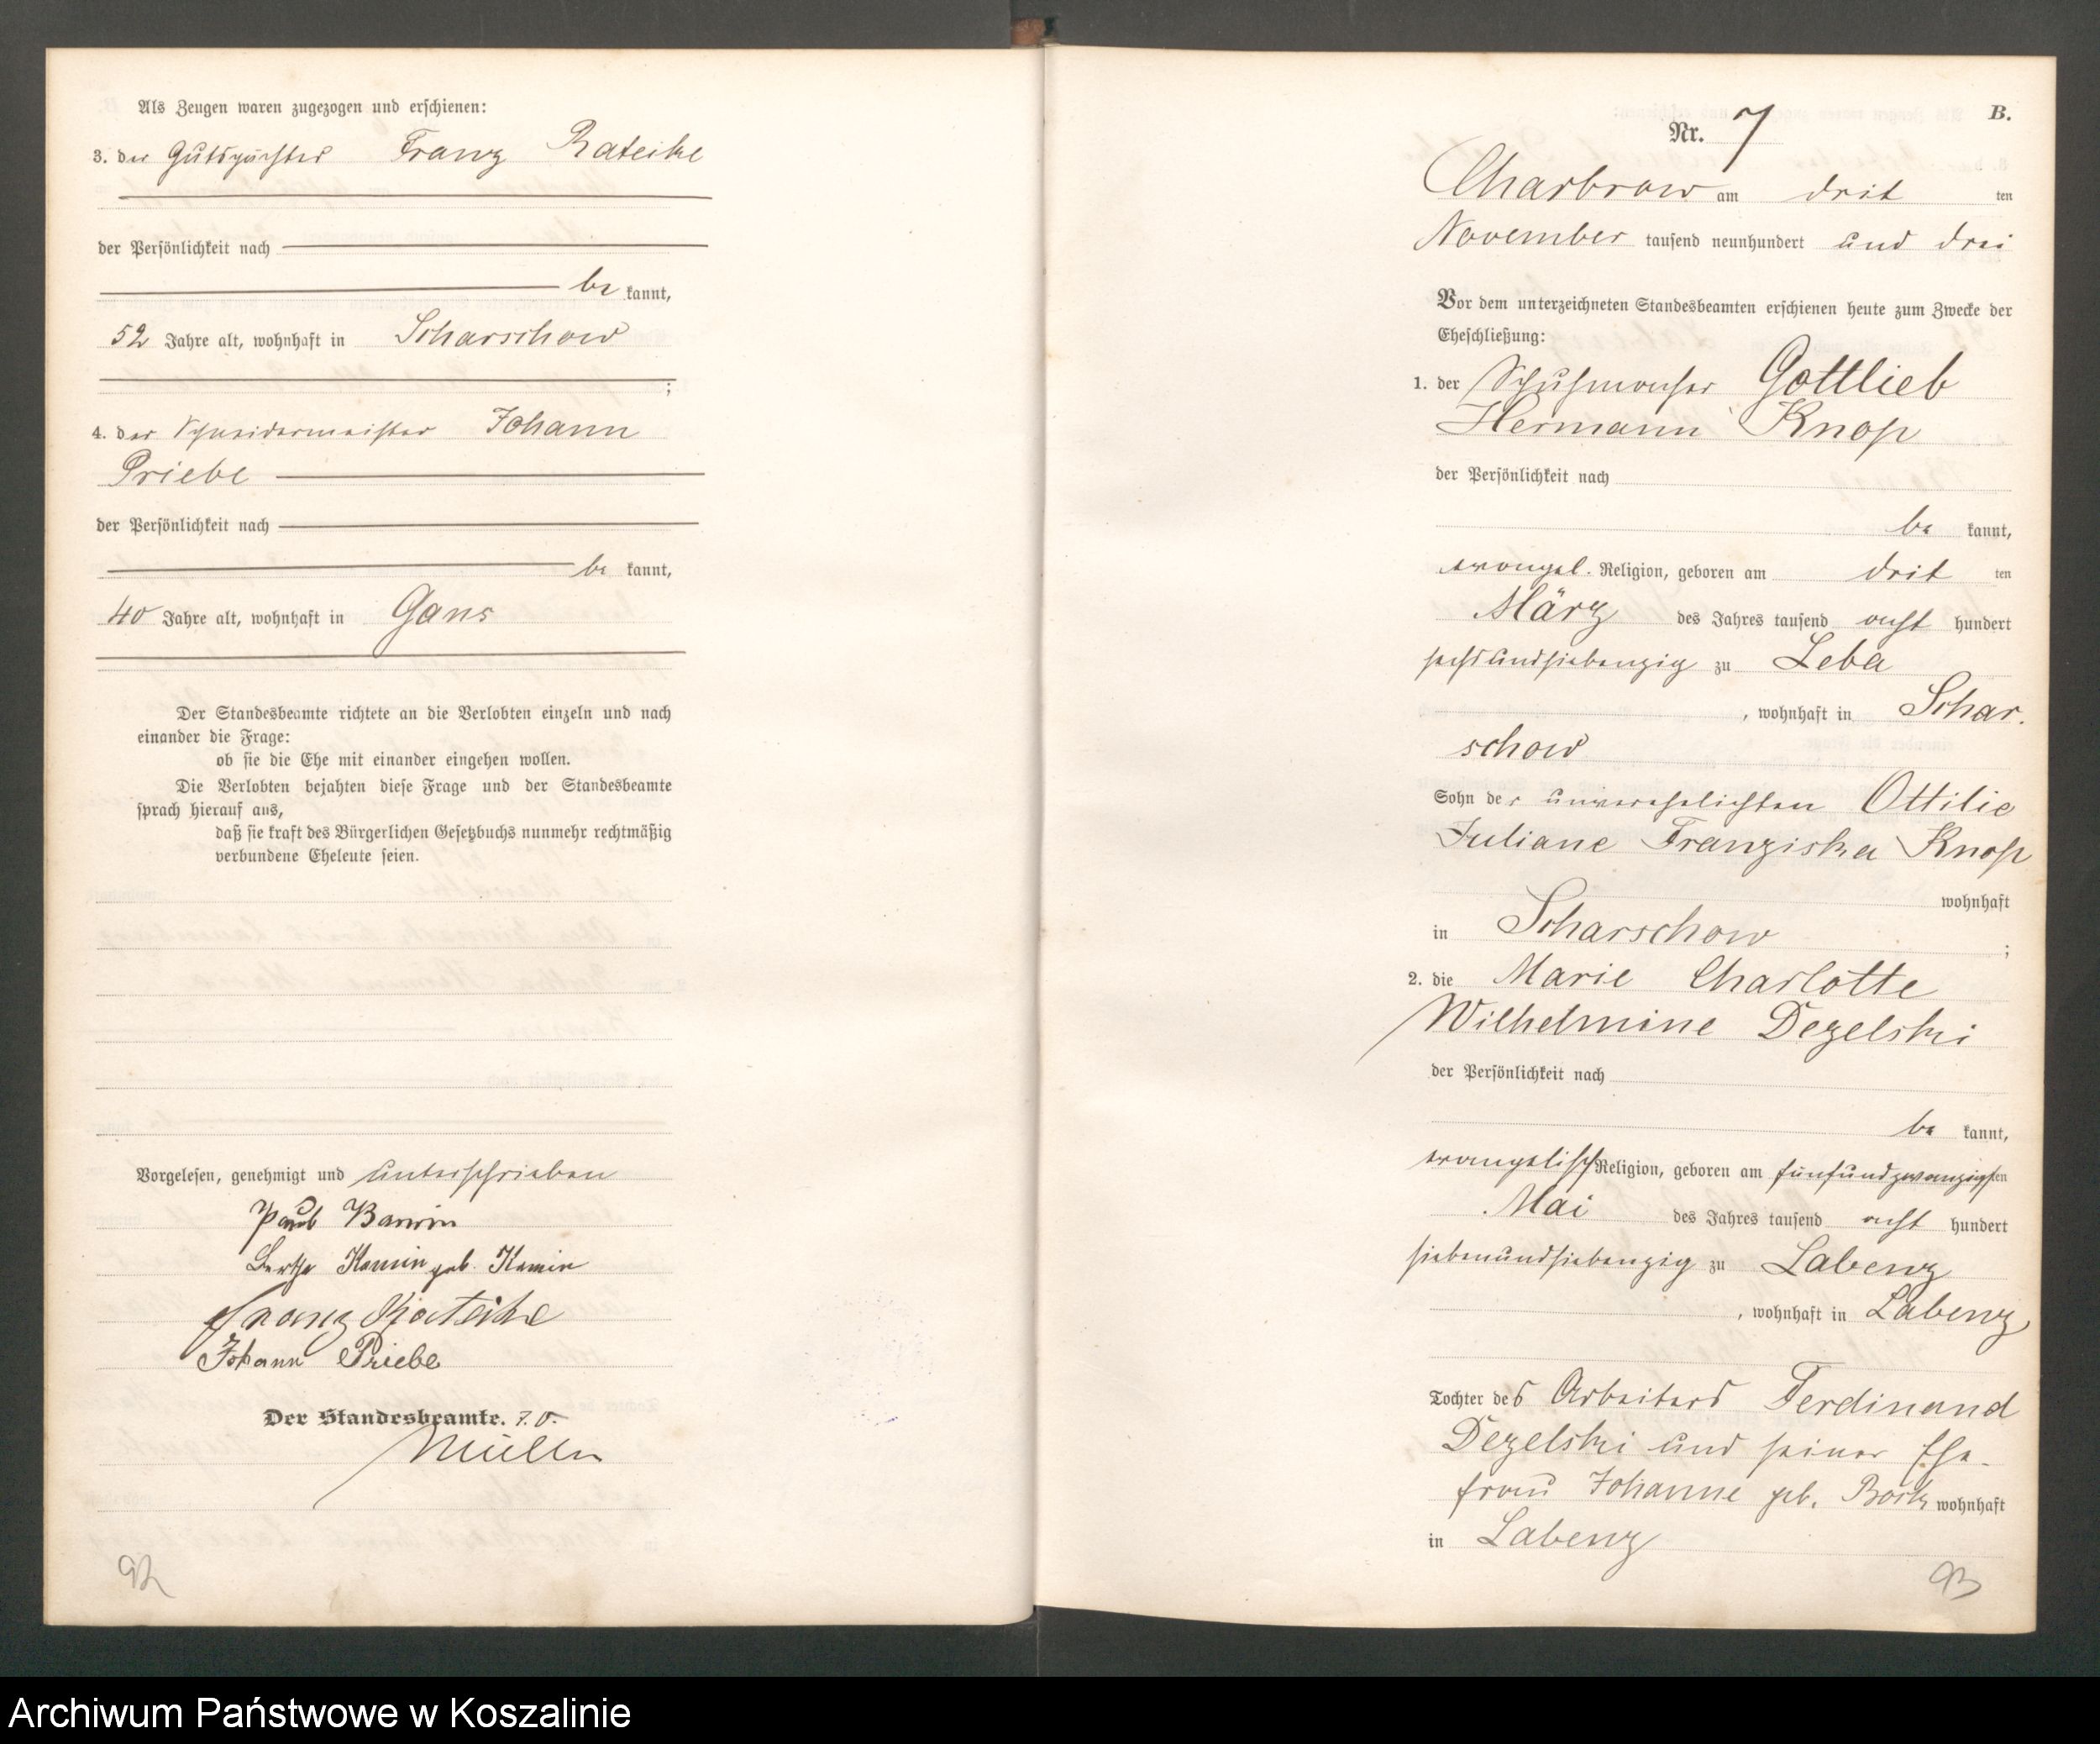 Als Zeugen waren zugezogen und erschienen:
3. der Gutspächter Franz Rateike
der Persönlichkeit nach
be kannt,
52 Jahre alt, wohnhaft in Scharschow
;
4. der Schneidermeister Johann
Priebe
der Persönlichkeit nach
be kannt,
40 Jahre alt, wohnhaft in Gans
Der Standesbeamte richtete an die Verlobten einzeln und nach
einander die Frage:
ob sie die Ehe mit einander eingehen wollen.
Die Verlobten bejahten diese Frage und der Standesbeamte
sprach hierauf aus,
daß sie kraft des Bürgerlichen Gesetzbuchs nunmehr rechtmäßig
verbundene Eheleute seien.
Vorgelesen, genehmigt und unterschrieben
Paul
Bertha Kamin geb. Kamin
Franz Rateike
Johann Priebe
Der Standesbeamte.
Müller
92
B.
Nr. 7
Charbrow am drit ten
November tausend neunhundert und drei
Vor dem unterzeichneten Standesbeamten erschienen heute zum Zwecke der
Eheschließung:
1. der Schuhmacher Gottlieb
Hermann Knop
der Persönlichkeit nach
be kannt,
evangel. Religion, geboren am drit ten
März des Jahres tausend acht hundert
sechsundsiebenzig zu Leba
, wohnhaft in Schar-
schow
Sohn der unverehelichten Ottilie
Juliane Franziska Knop
wohnhaft
in Scharschow ;
2. die Marie Charlotte
Wilhelmine Dezelski
der Persönlichkeit nach
be kannt,
evangelisch Religion, geboren am fünfundzwanzigsten
Mai des Jahres tausend acht hundert
siebenundsiebenzig zu Labenz
, wohnhaft in Labenz
Tochter des Arbeiters Ferdinand
Dezelski und seiner Ehe-
frau Johanne geb. Bork wohnhaft
in Labenz
93
Archiwum Państwowe w Koszalinie